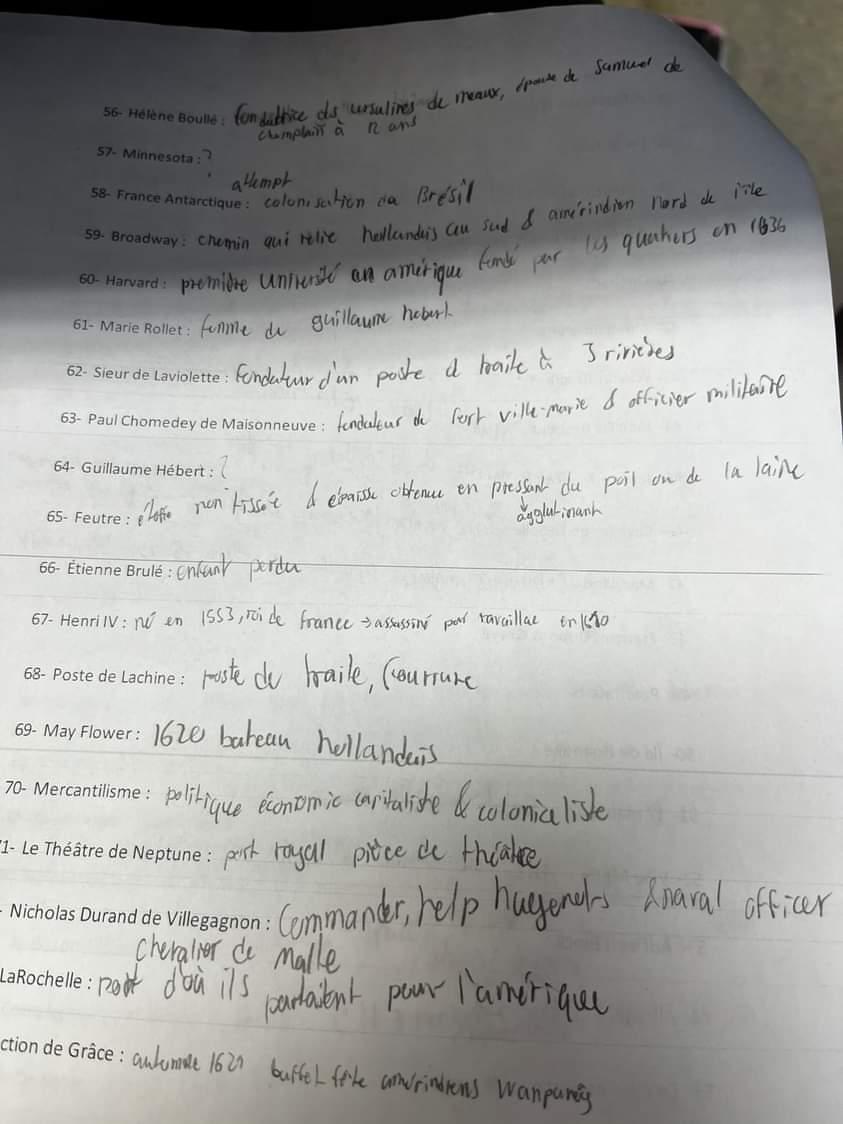 56- Hélène Boullé : fondatrice ds ursulines de meaux, épouse de Samuel de
champlain à 12 ans
57- Minnesota : ?
attempt
58- France Antarctique : colonisation du Brésil
59- Broadway : chemin qui relie hollandais au sud & amérindien nord de l'île
60- Harvard : première université en amérique fondé par les quakers en 1636
61- Marie Rollet : femme de guillaume hebert
62- Sieur de Laviolette : Fondateur d'un poste d traite à 3 rivières
63- Paul Chomedey de Maisonneuve : fondateur de fort ville-marie & officier militaire
64- Guillaume Hébert : ?
65- Feutre : étoffe non tissée & épaisse obtenue en pressant du poil ou de la laine
agglutinant
66- Étienne Brulé : enfant perdu
67- Henri IV : né en 1553, roi de france → assassiné par ravaillac en 1610
68- Poste de Lachine : poste de traite, fourrure
69- May Flower : 1620 bateau hollandais
70- Mercantilisme : politique économic capitaliste & colonialiste
71- Le Théâtre de Neptune : port royal pièce de théâtre
- Nicholas Durand de Villegagnon : Commander, help hugenots & naval officer
Chevalier de Malte
LaRochelle : port d'où ils partaient pour l'amérique
ction de Grâce : automne 1621 buffet fête amérindiens